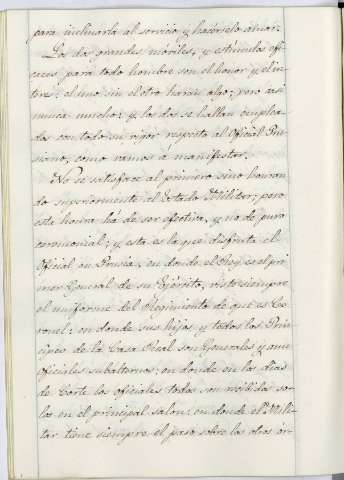 para inclinarla al servicio y hacérselo amar.
Los dos grandes móviles, y estímulos efi-
caces para todo hombre son el honor y el in-
teres: el uno sin el otro harán algo; pero casi
nunca mucho; y los dos se hallan emplea-
dos con todo su vigor respecto al Oficial Pru-
siano, como vamos á manifestar.
No se satisface al primero sino honran-
do superiormente al Estado Militar; pero
esta honra há de ser efectiva, y no de pura
ceremonial; y esta es la que disfruta el
Oficial en Prusia, en donde el Rey es el pri-
mer General de su Exército, viste siempre
el uniforme del Regimiento de que es Co-
ronel: en donde sus hijos, y todos los Prin-
cipes de la Casa Real son Generales y aun
oficiales subalternos: en donde en los dias
de Corte los oficiales todos son recibidos so-
los en el principal salon: en donde el Mili-
tar tiene siempre el paso sobre las otras ór-